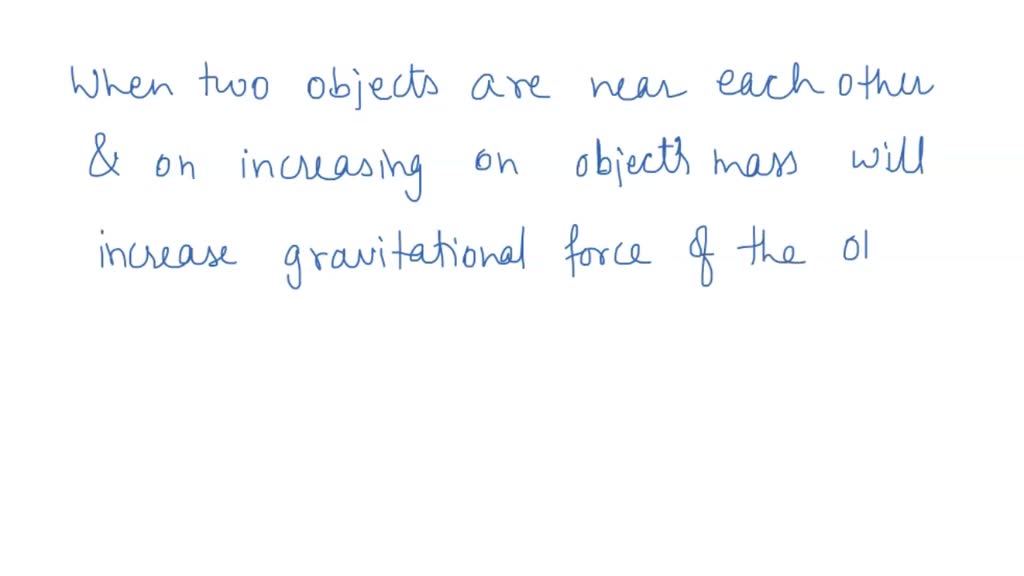 When two objects are near each other
& on increasing on object's mass will
increase gravitational force of the ol